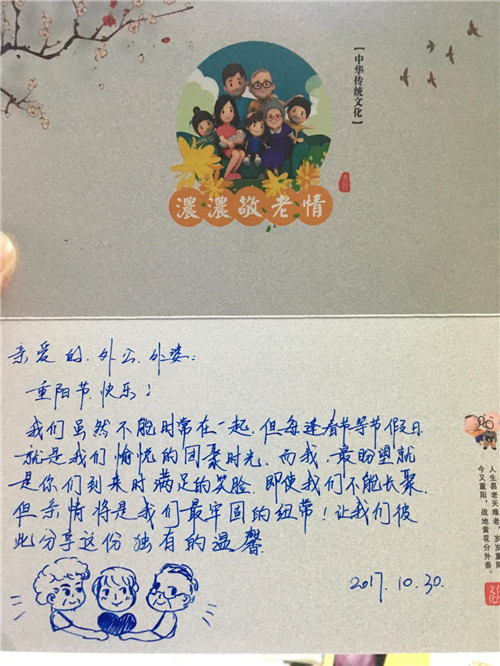 【中华传统文化】
濃濃敬老情
亲爱的、外公、外婆:
重阳节快乐!
我们虽然不能时常在一起,但每逢春节等节假日
就是我们愉悦的团聚时光,而我,最盼望就
是你们到来时满足的笑脸,即使我们不能长聚,
但亲情将是我们最牢固的纽带!让我们彼
此分享这份独有的温馨
2017.10.30.
人生易老天难老,岁岁重阳
今又重阳,战地黄花分外香。